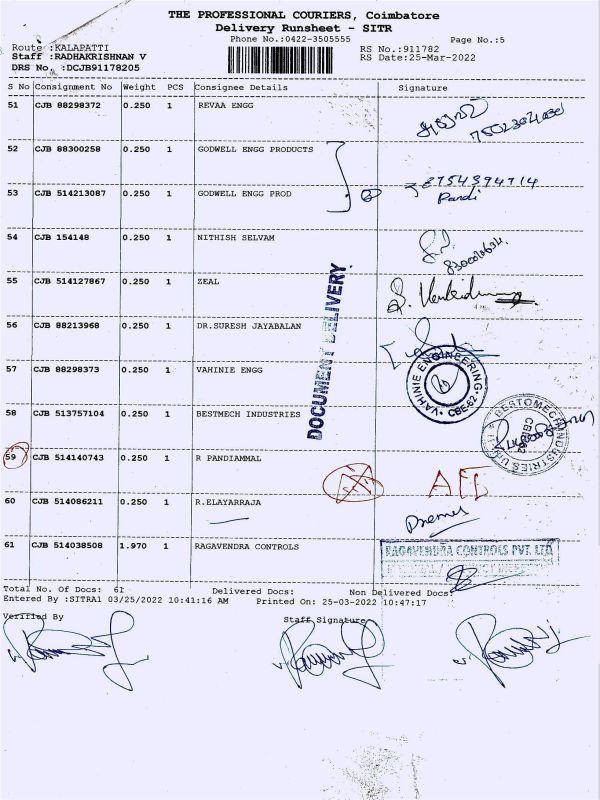 THE PROFESSIONAL COURIERS, Coimbatore
Delivery Runsheet - SITR
Phone No.:0422-3505555 Page No.:5
Route :KALAPATTI RS No.:911782
Staff :RADHAKRISHNAN V RS Date:25-Mar-2022
DRS No. :DCJB91178205
S No Consignment No Weight PCS Consignee Details Signature
51 CJB 88298372 0.250 1 REVAA ENGG
52 CJB 88300258 0.250 1 GODWELL ENGG PRODUCTS
8754394714
53 CJB 514213087 0.250 1 GODWELL ENGG PROD
Pandi
54 CJB 154148 0.250 1 NITHISH SELVAM
55 CJB 514127867 0.250 1 ZEAL
56 CJB 88213968 0.250 1 DR.SURESH JAYABALAN
DOCUMENT DELIVERY.
57 CJB 88298373 0.250 1 VAHINIE ENGG
VAHINIE ENGINEERING
CBE-62
58 CJB 513757104 0.250 1 BESTMECH INDUSTRIES
BESTOMECH INDUSTRIES
59 CJB 514140743 0.250 1 R PANDIAMMAL
60 CJB 514086211 0.250 1 R.ELAYARRAJA
61 CJB 514038508 1.970 1 RAGAVENDRA CONTROLS
RAGAVENDRA CONTROLS PVT. LTD
Total No. Of Docs: 61 Delivered Docs: Non Delivered Docs:
Entered By :SITRA1 03/25/2022 10:41:16 AM Printed On: 25-03-2022 10:47:17
Verified By Staff Signature